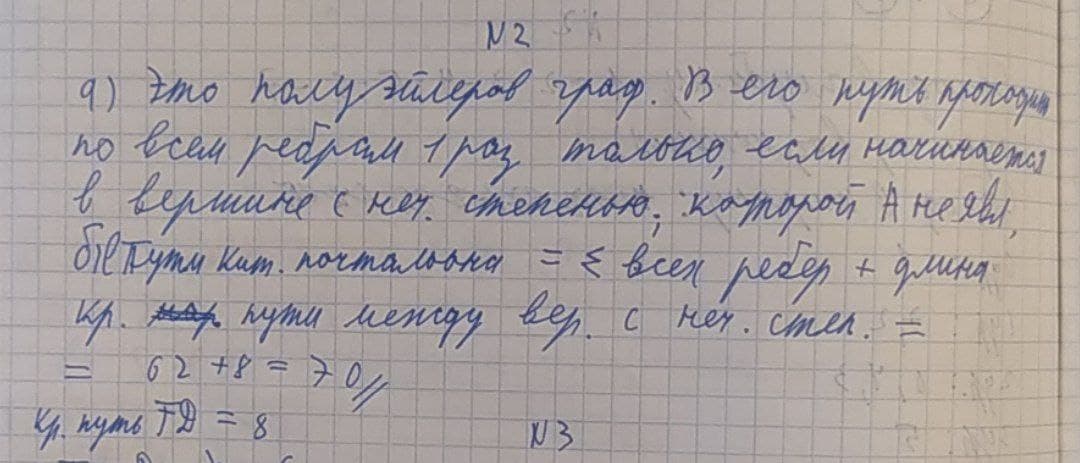 N2
а) Это полуэйлеров граф. В его путь проходит
по всем ребрам 1 раз только, если начинается
в вершине с неч. степенью, которой А не явл.
б) l Пути кит. почтальона = Σ всех ребер + длина
кр. пути между вер. с неч. степ. =
= 62 + 8 = 70
Кр. путь FD = 8
N3